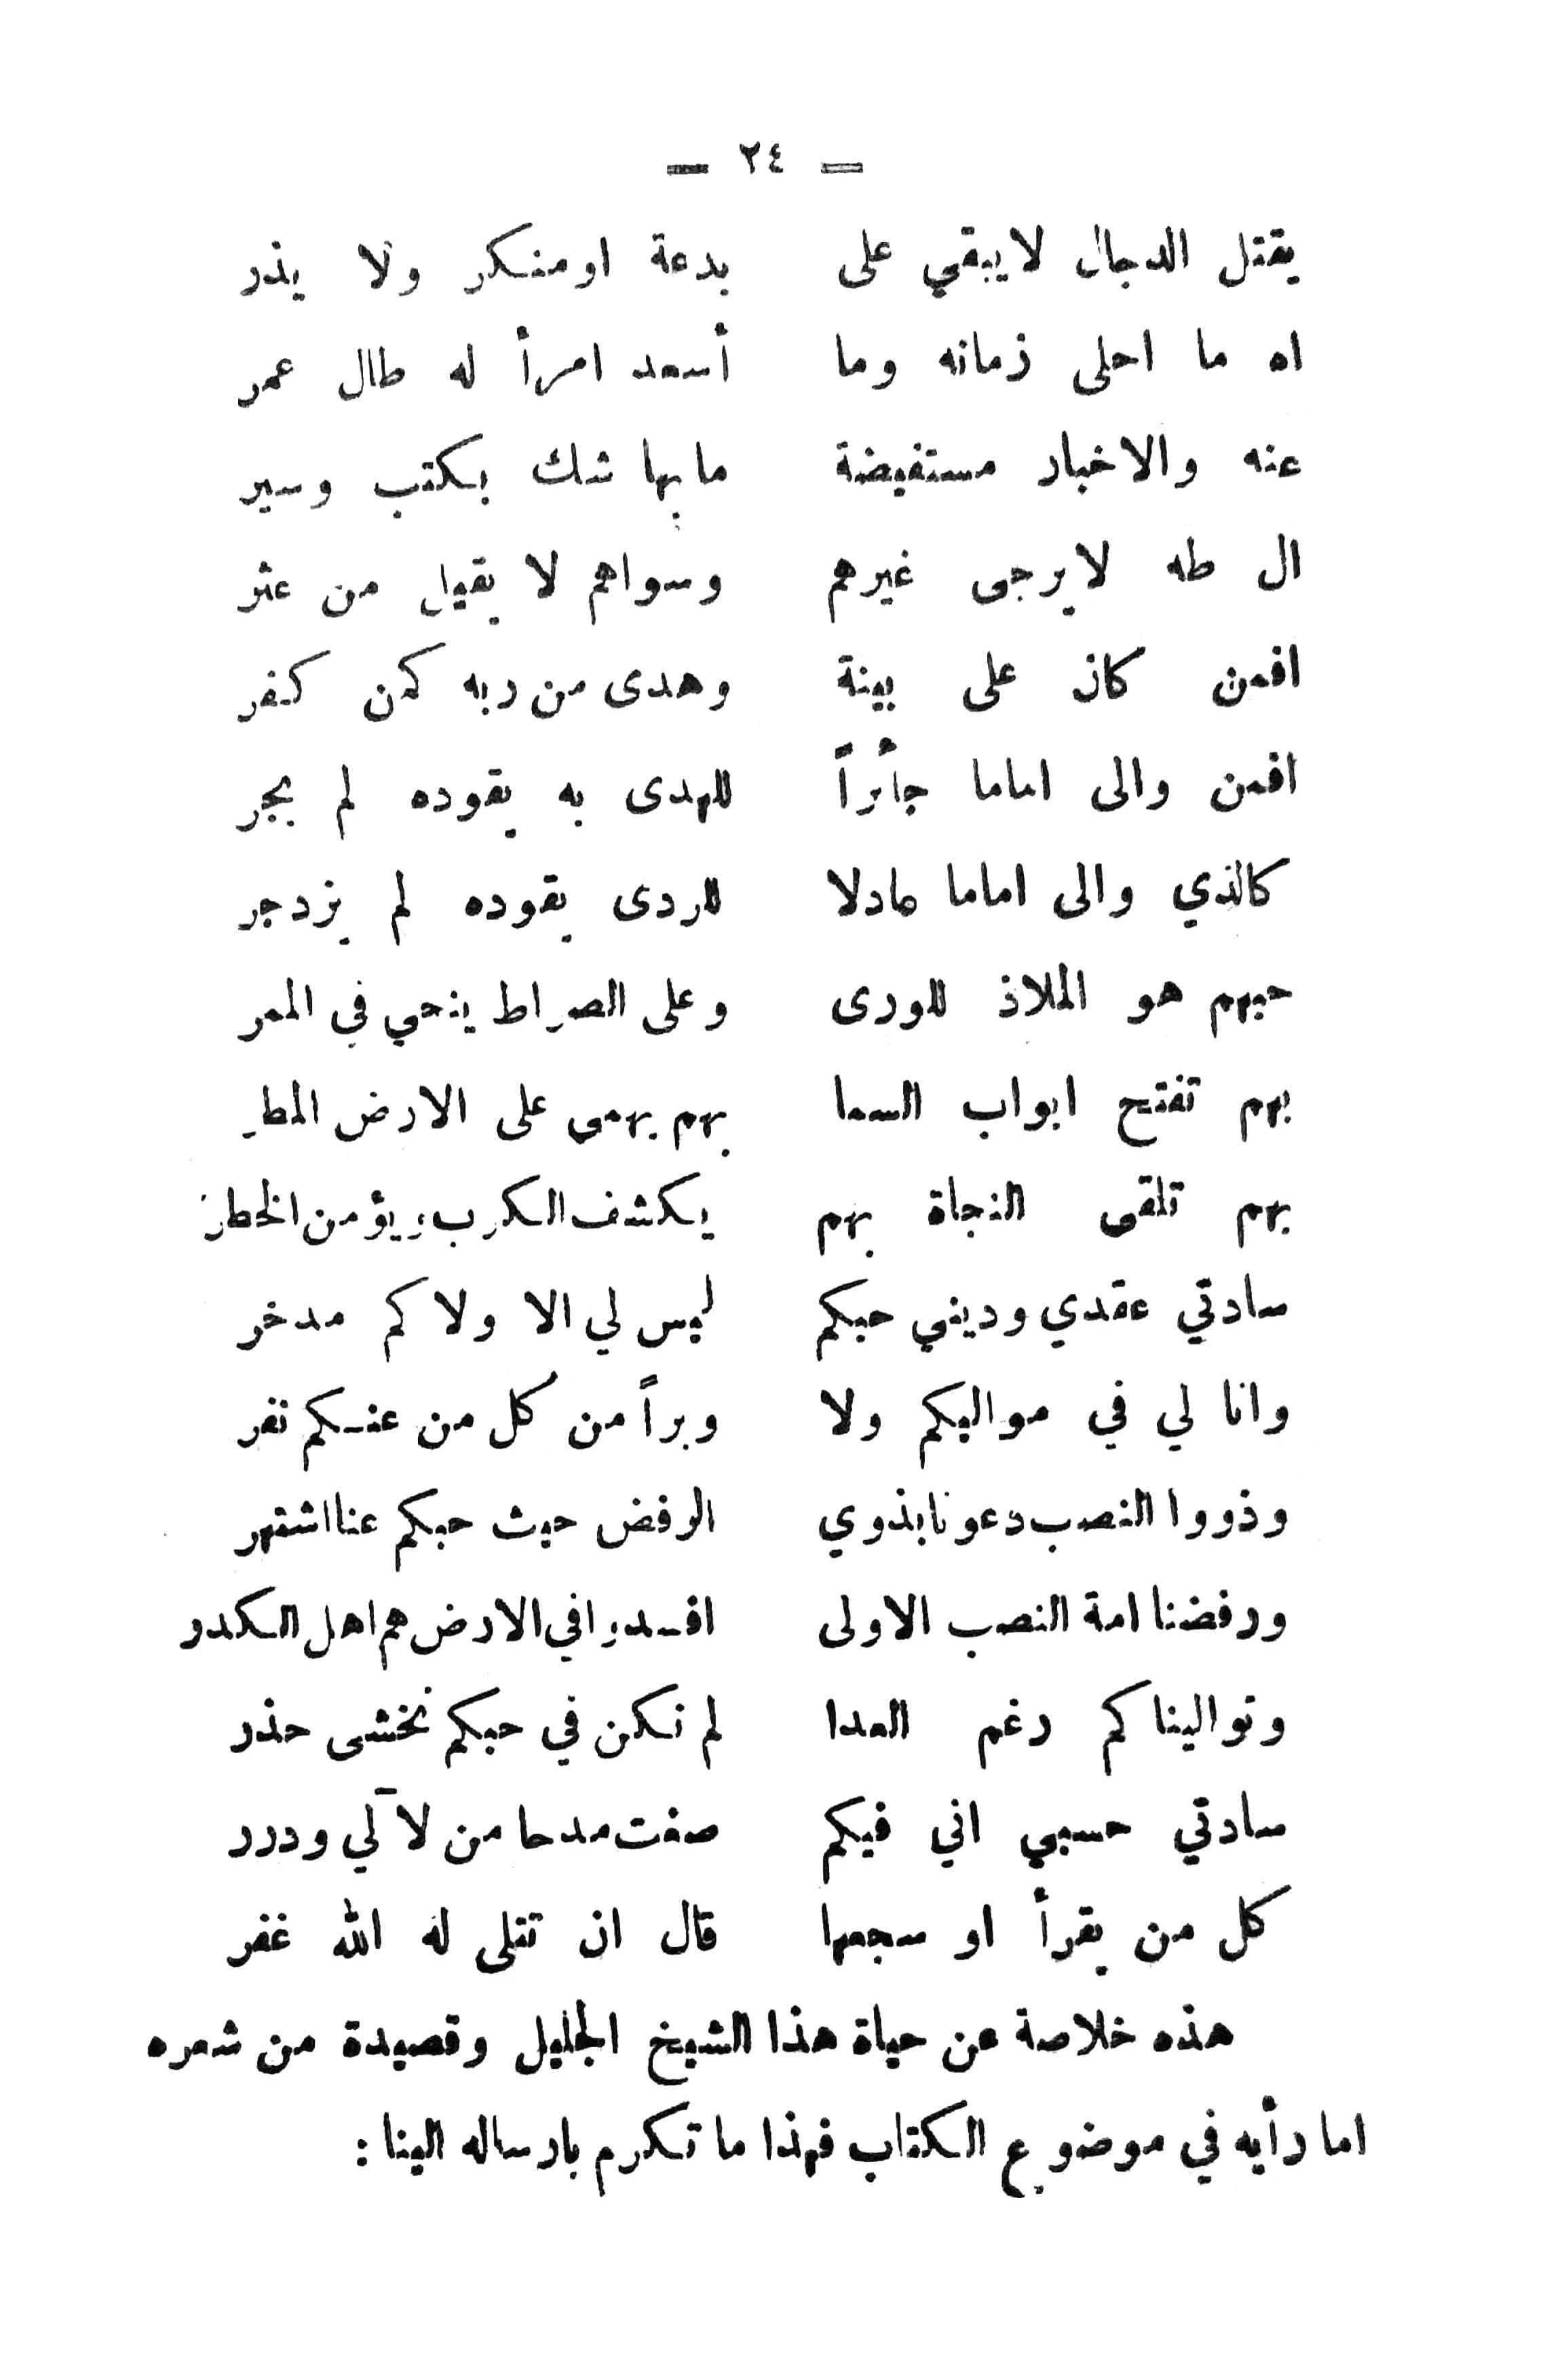 – ٢٤ –
يقتل الدجال لايبقي على بدعة او منكر ولا يذر
اه ما احلى زمانه وما أسعد امرأ له طال عمر
عنه والاخبار مستفيضة مابها شك بكتب وسير
ال طه لايرجى غيرهم وسواهم لا يقيل من عثر
افمن كان على بينة وهدى من ربه كمن كفر
افمن والى اماما جأئراً للهدى به يقوده لم يجر
كالذي والى اماما عادلا للردى يقوده لم يزدجر
حبهم هو الملاذ للورى وعلى الصراط ينجي في الممر
بهم تفتح ابواب السما بهم يهمى على الارض المطر
بهم تلقى النجاة بهم يكشف الكرب ويؤمن الخطر
سادتي عقدي وديني حبكم ليس لي الا ولاكم مدخر
وانا لي في مواليكم ولا وبراً من كل من عنكم نفر
وذووا النصب دعونا بذوي الرفض حيث حبكم عنا اشتهر
ورفضنا امة النصب الاولى افسدوا في الارض هم اهل الكدر
وتوالينا كم رغم العدا لم نكن في حبكم نخشى حذر
سادتي حسبي اني فيكم صغت مدحا من لآلي ودرر
كل من يقرأ او سمعها قال ان تتلى له الله غفر
هذه خلاصة عن حياة هذا الشيخ الجليل وقصيدة من شعره
اما رأيه في موضوع الكتاب فهذا ما تكرم بارساله الينا :